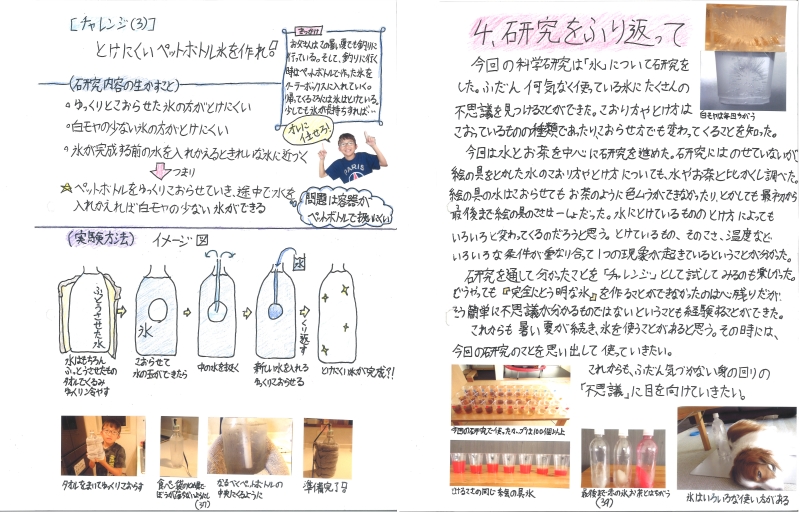 [チャレンジ(3)]
とけにくいペットボトル氷を作れ!!
きっかけ
お父さんはこの暑い夏でも釣りに
行っている。そして、釣りに行く
時はペットボトルで作った氷を
クーラーボックスに入れていく。
帰ってくるころには氷はとけている。
少しでも氷が長持ちすれば…
(研究内容の生かすこと)
◦ゆっくりとこおらせた氷の方がとけにくい
◦白モヤの少ない氷の方がとけにくい
◦氷が完成する前の水を入れかえるときれいな氷に近づく
つまり
オレに
任せろ!
☆ペットボトルをゆっくりこおらせていき、途中で水を
入れかえれば白モヤの少ない氷ができる
問題は容器が
ペットボトルで扱いにくい
(実験方法) イメージ図
ふっとうさせた水
氷
水
くり返す
水はもちろん
ふっとうさせたもの
タオルでくるみ
ゆっくり冷やす
こおらせて
氷の玉ができたら
中の水を抜く
新しい水を入れる
ゆっくりこおらせる
とけにくい氷が完成?!
タオルをまいてゆっくりこおらす
(37)
なるべくペットボトルの
中央にくるように
準備完了!!
4.研究をふり返って
今回の科学研究は「氷」について研究を
した。ふだん何気なく使っている氷にたくさんの
不思議を見つけることができた。こおり方やとけ方は
こおっているものの種類であったり、こおらせ方でも変わってくることを知った。
白モヤは毎回ちがう
今回は水とお茶を中心に研究を進めた。研究にはのせていないが
絵の具をとかした水のこおり方やとけ方についても、水やお茶と比かくし調べた。
絵の具の水はこおらせてもお茶のように色ムラができなかったり、とかしても最初から
最後まで絵の具のこさは一しょだった。水にとけているもののとけ方によっても
いろいろと変わってくるのだろうと思う。とけているもの、そのこさ、温度など
いろいろな条件が重なり合って1つの現象が起きているということが分かった。
研究を通して分かったことを「チャレンジ」として試してみるのも楽しかった。
どうやっても『完全にとう明な氷』を作ることができなかったのは心残りだが、
そう簡単に不思議が分かるものではないということも経験することができた。
これからも暑い夏が続き、氷を使うことがあると思う。その時には、
今回の研究のことを思い出して使っていきたい。
これからも、ふだん気づかない身の回りの
「不思議」に目を向けていきたい。
今回の研究で使ったカップは100個以上
とけるこさの同じ絵の具氷
(39)
氷はいろいろな使い方がある